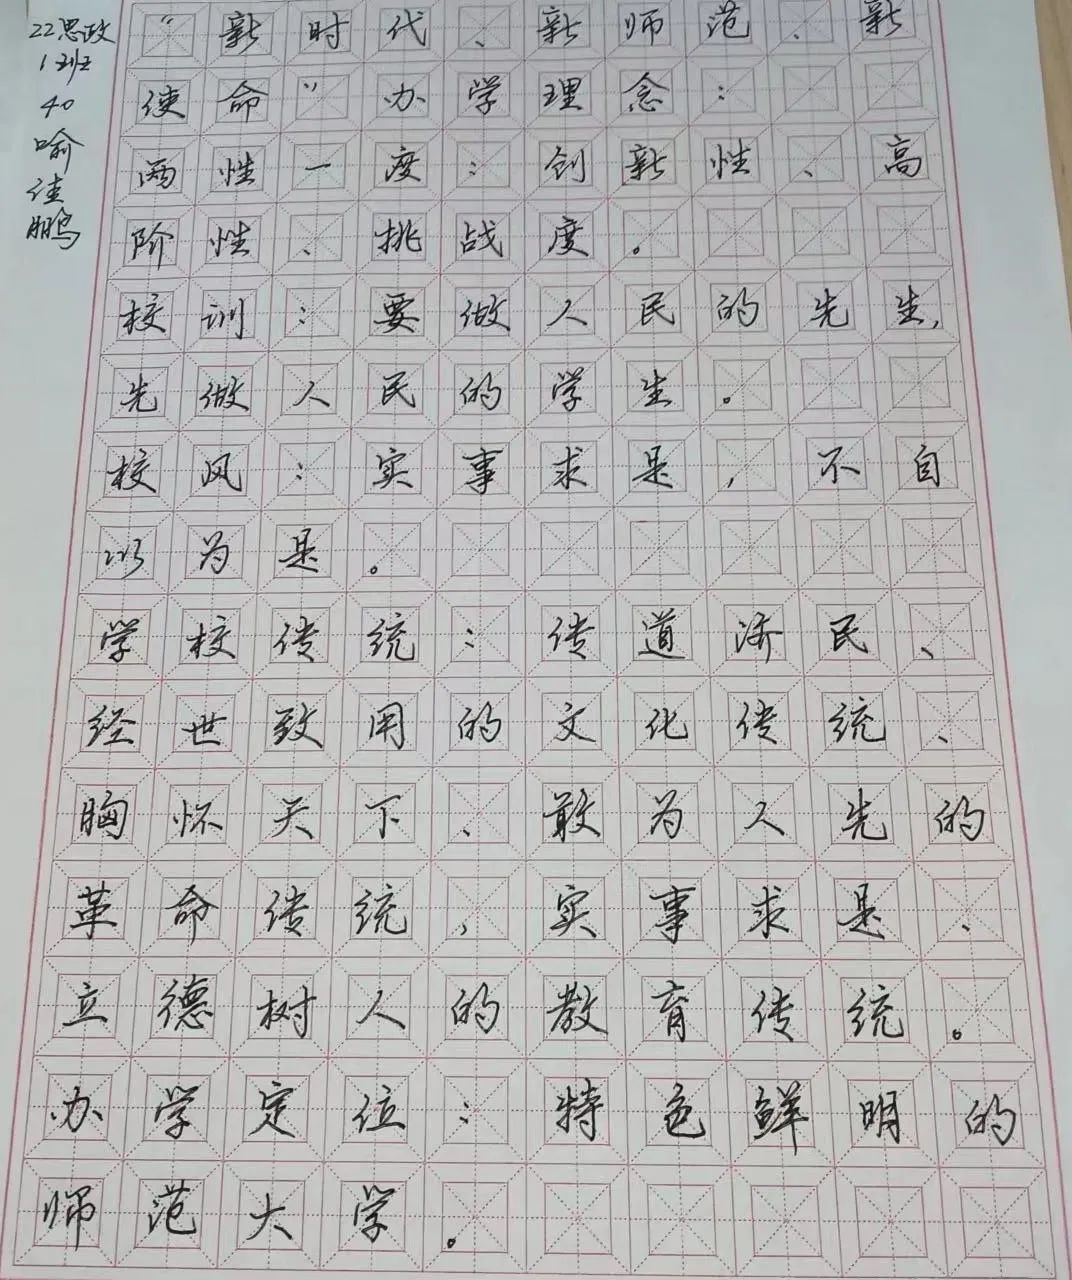 22思政
1班
40
喻
佳
鹏
“新时代、新师范、新
使命”办学理念：
两性一度：创新性、高
阶性、挑战度。
校训：要做人民的先生，
先做人民的学生。
校风：实事求是，不自
以为是。
学校传统：传道济民、
经世致用的文化传统、
胸怀天下、敢为人先的
革命传统，实事求是、
立德树人的教育传统。
办学定位：特色鲜明的
师范大学。